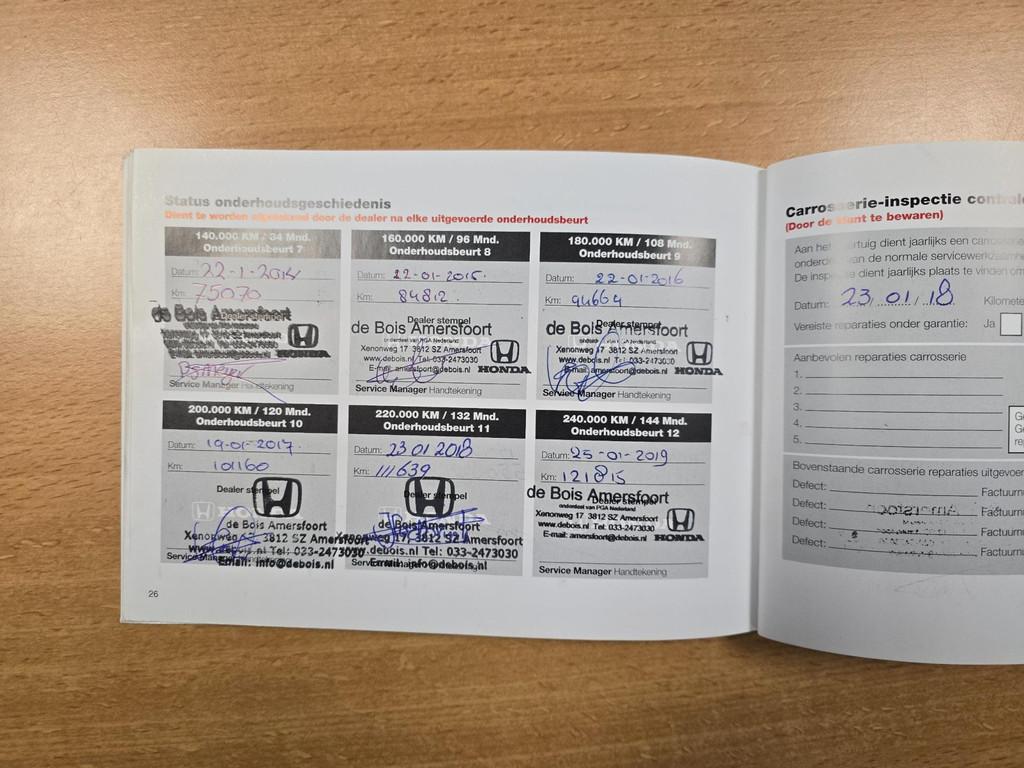 Status onderhoudsgeschiedenis
Dient te worden afgetekend door de dealer na elke uitgevoerde onderhoudsbeurt
140.000 KM / 84 Mnd.
Onderhoudsbeurt 7
Datum: 22-1-2014
Km: 75070
de Bois Amersfoort
HONDA
Service Manager Handtekening
160.000 KM / 96 Mnd.
Onderhoudsbeurt 8
Datum: 22-01-2015.
Km: 84812.
Dealer stempel
de Bois Amersfoort
onderdeel van PGA Nederland
Xenonweg 17 3812 SZ Amersfoort
www.debois.nl Tel: 033-2473030
E-mail: amersfoort@debois.nl HONDA
Service Manager Handtekening
180.000 KM / 108 Mnd.
Onderhoudsbeurt 9
Datum: 22-01-2016
Km: 94664
Dealer stempel
de Bois Amersfoort
onderdeel van PGA Nederland
Xenonweg 17 3812 SZ Amersfoort
www.debois.nl Tel: 033-2473030
E-mail: amersfoort@debois.nl HONDA
Service Manager Handtekening
200.000 KM / 120 Mnd.
Onderhoudsbeurt 10
Datum: 19-01-2017.
Km: 101160
Dealer stempel
de Bois Amersfoort
Xenonweg 17, 3812 SZ Amersfoort
www.debois.nl Tel: 033-2473030
Email: info@debois.nl
Service Manager
220.000 KM / 132 Mnd.
Onderhoudsbeurt 11
Datum: 23 01 2018
Km: 111639
Dealer stempel
de Bois Amersfoort
17, 3812 SZ Amersfoort
www.debois.nl Tel: 033-2473030
Email: info@debois.nl
240.000 KM / 144 Mnd.
Onderhoudsbeurt 12
Datum: 25-01-2019
Km: 121815
de Bois Amersfoort
onderdeel van PGA Nederland
Xenonweg 17 3812 SZ Amersfoort
www.debois.nl Tel: 033-2473030
E-mail: amersfoort@debois.nl HONDA
Service Manager Handtekening
26
Carrosserie-inspectie control
(Door de klant te bewaren)
Aan het voertuig dient jaarlijks een carrosse
onderd van de normale servicewerkzaamhe
De inspectie dient jaarlijks plaats te vinden om
Datum: 23/01/18 Kilomete
Vereiste reparaties onder garantie: Ja
Aanbevolen reparaties carrosserie
1.
2.
3.
4.
5.
Bovenstaande carrosserie reparaties uitgevoer
Defect: Factuurn
Defect: Factuurn
Defect: Factuurn
Defect: Factuurn